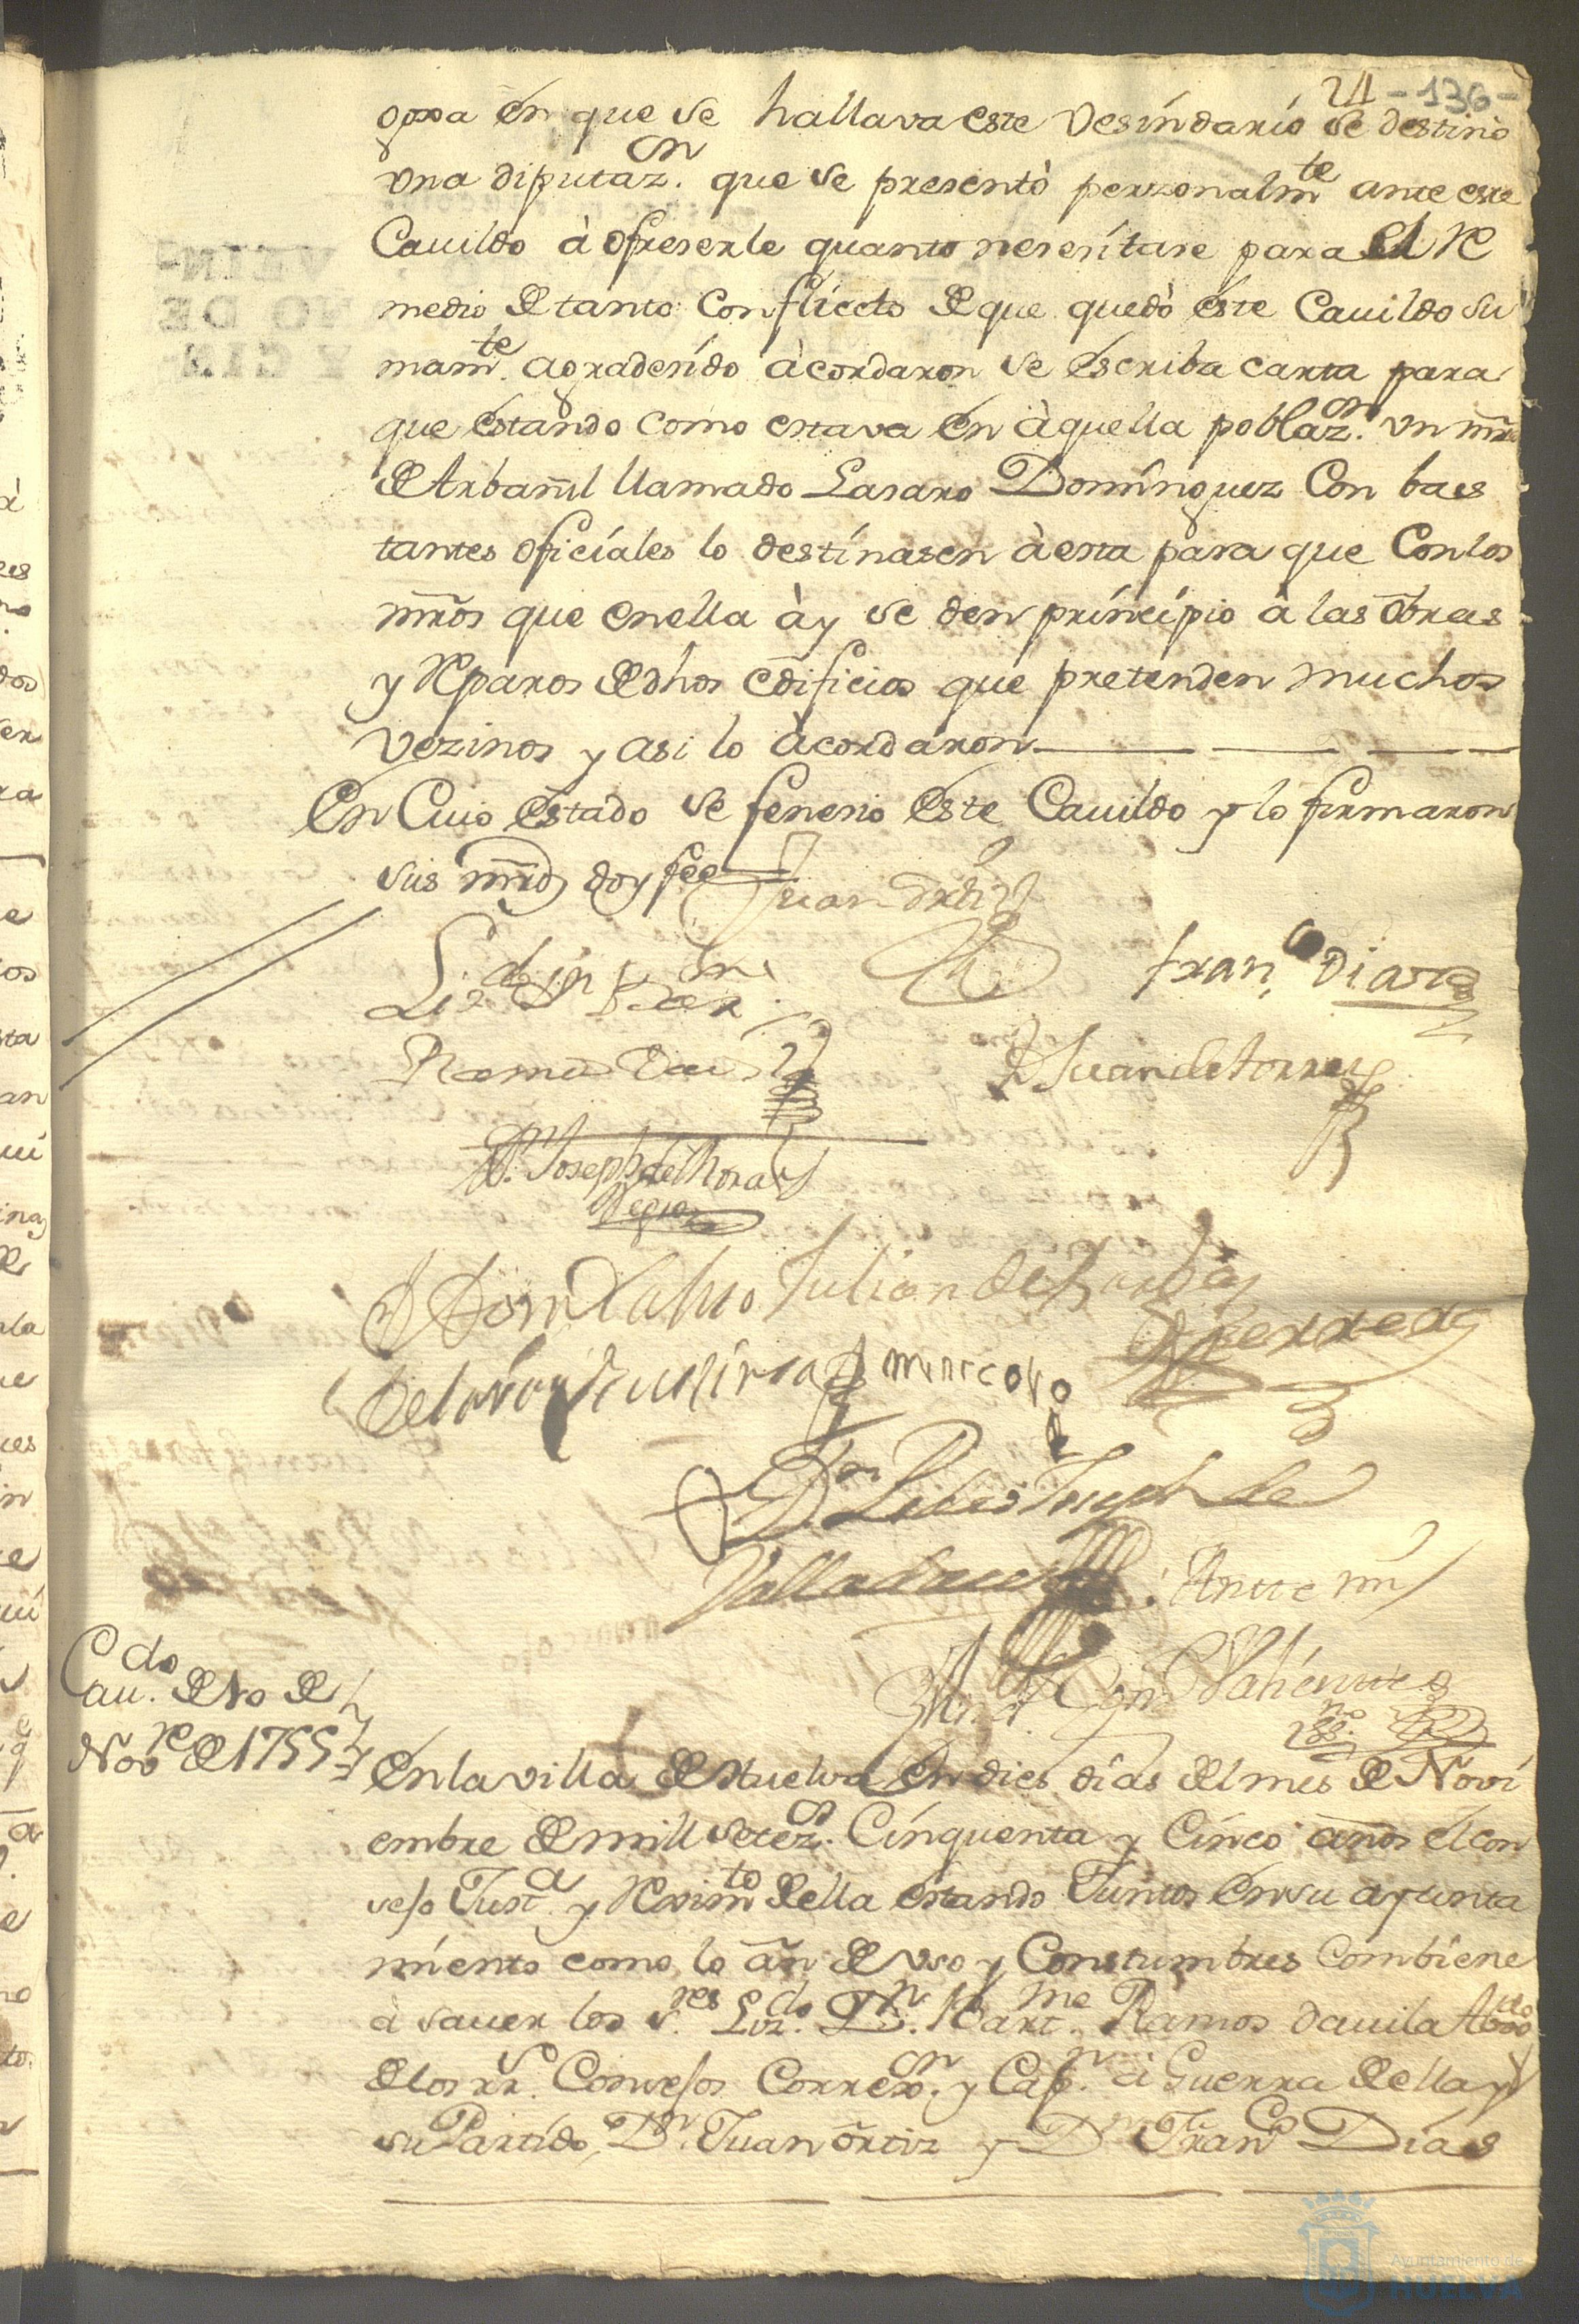 24 - 136 -
goxa en que se hallava este Vesindario se destinò
Una diputaz.on que se presentò perzonalm.te ante este
Cavildo à ofreserle quanto nesesitare para el Re
medio de tanto Conflicto de que quedò este Cavildo su
mam.te agradesido àcordaron se escriba carta para
que estando como estava en àquella poblaz.on un mro
de Arbañil llamado Lasaro Dominguez Con bas
tantes oficiales lo destinasen à esta para que Con los
mros que en ella ày se den principio à las obras
y Reparos de dhos edificios que pretenden muchos
vezinos y asi lo àcordaron
En Cuio estado se fenesio este Cavildo y lo firmaron
sus mrds doy fee
Juan Ortiz
Liz.do Dn Bar.me
Fran.co Diaz
Ramos Davila
D Juan de torres
Dn. Joseph de Mora
Negro
Julian de
Heredia
marcos
Dn Pedro Joseph de
Valladares
Ante mi
Cav.do de 10 de
Nov.re de 1755
En la villa de Huelva en dies dias del mes de Novi
embre de mill setez.os Cinquenta y Cinco años el con
sejo Just.a y Reximto de ella estando Juntos en su ayunta
miento como lo àn de uso y Constumbres Combiene
à saver los s.res Liz.do Dn. Bart.me Ramos davila Abdo
de los rr.s Consejos Correx.or y Cap.n à Guerra de ella y
su Partido, Dn. Juan ortiz y Dn Fran.co Dias
Ayuntamiento de
HUELVA